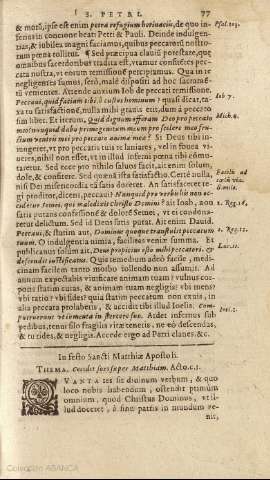 S. PETRI. 77
& morũ, ipse est enim petra refugium herinaciis, de quo in- Psal. 103.
fertis in concione beati Petri & Pauli. Deinde indulgen-
tias, & iubilea magni faciamus, quibus peccatori nostro-
rum pœna tollitur. ¶ Sed præcipua clauũ potestate, quæ
omnibus sacerdotibus tradita est, vtamur confitētes pec-
cata nostra, vt eorum remissionē percipiamus. Qua in re
negligentes sumus, serò, male dispositi ad hoc sacramẽ-
tũ venientes. Attende anxium Iob de peccati remissione.
Peccaui, quid faciam tibi ô custos hominum? quasi dicat, ta- Iob 7.
xa tu satisfactionẽ, nulla mihi grauis erit, dum à peccato
sim liber. Et iterum, Quid dignum offeram Deo pro peccato Mich. 6.
meo? nunquid dabo primogenitum meum pro scelere meo, fru-
ctum ventris mei pro peccato animæ meæ? Si Deus tibi in-
iungeret, vt pro peccatis tuis te laniares, vel in fouea vi-
ueres, nihil non esset, vt in illud infernũ pœna tibi cõmu-
taretur. Sed ecce pro nihilo saluus facit, ait enim solum,
dole, & confitere. Sed quænã ista satisfactio. Certè nulla,
nisi Dei misericordia ea satis doceret. An satisfaceret re-
gi proditor, dicens, peccaui? Nunquid pro verbis his non oc- 2. Reg. 16.
cidetur Semei, qui maledixit christo Domini? ait Ioab, non
satis putans confessionẽ & dolorẽ Semei, vt ei condona-
retur delictum. Sed id Deus satis putat. Ait enim Dauid.
Peccaui, & statim aut, Dominus quoque transtulit peccatum 2. Reg. 12.
tuum. O indulgentia nimia, facilis veniæ summa. Et
publicanus solùm ait, Deus propitius esto mihi peccatori. & Luc. 18.
descendit iustificatus. Quia remedium adeò facile, medi-
cinam facilem tanto morbo tollendo non assumis? Ad
annum expectabis viuificare animam tuam? vulnus cor-
poris statim curas, & animam tuam negligis? vbi mens?
vbi ratio? vbi fides? quia statim peccatum non exuis, in
alia peccata prolaberis, & accidet tibi illud Ioelis. Com- Ioel. 1.
putruerunt iumenta in stercore suo. Adest infernus sub
pedibus, tenui filo fragilis vitæ tenetis, ne eò descendas,
& tu rides, & negligis. Accede ergo ad Petri claues. &c.
In festo Sancti Matthiæ Apostoli.
THEMA. Cecidit sors super Matthiam. Acto. c. 1.
QVANTA res sit diuinum verbum, & quo
loco nobis habendum, ostendit primùm
omnium, quod Christus Dominus, vt il-
lud doceret, à sinu patris in mundum ve-
nit,
Colección ABANCA